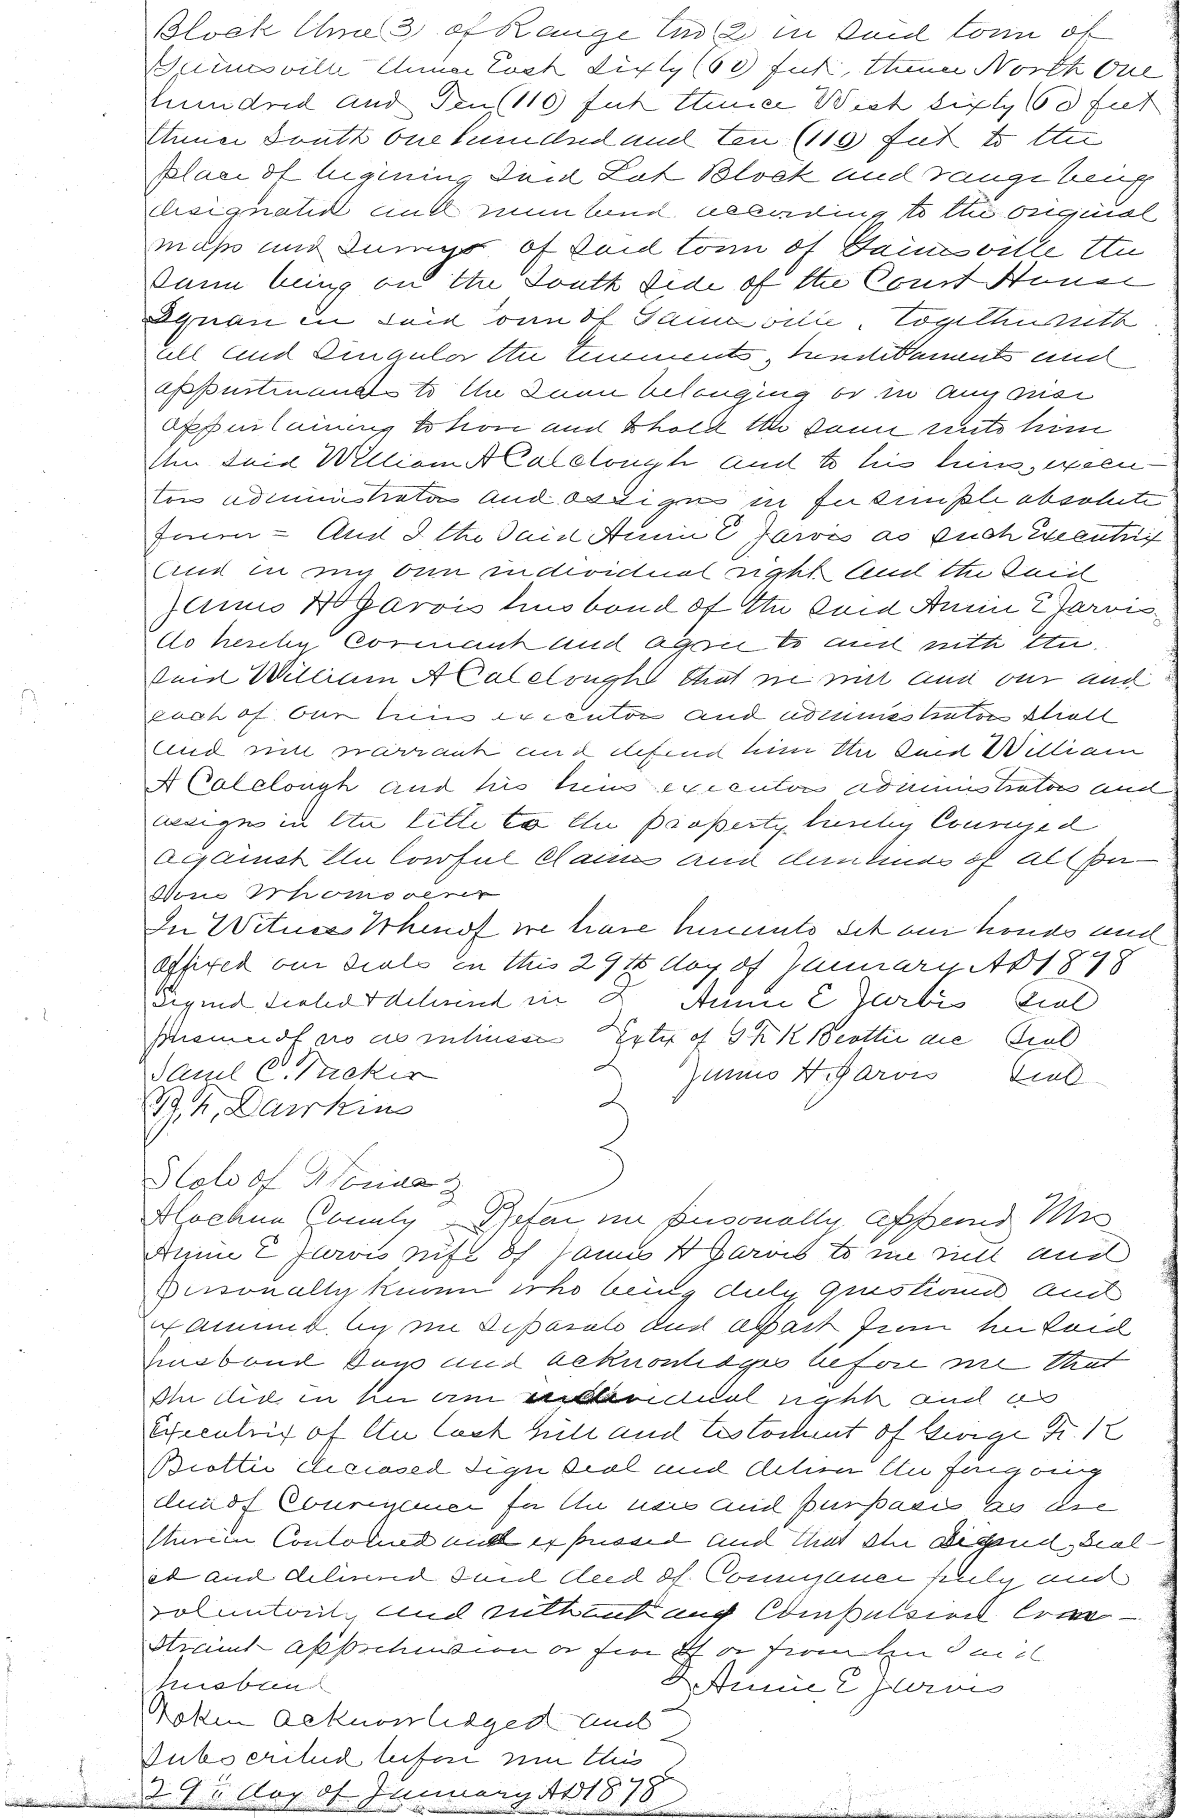 Block three (3) of Range two (2) in said town of
Gainesville thence East sixty (60) feet, thence North One
hundred and Ten (110) feet thence West sixty (60) feet
thence South one hundred and ten (110) feet to the
place of begining said Lot Block and range being
designated and numbered according to the original
maps and surveys of said town of Gainesville the
same being on the South side of the Court House
Square in said town of Gainesville, together with
all and singular the tenements, hereditaments and
appurtenances to the same belonging or in any wise
appertaining to have and to hold the same unto him
the said William A Calclough and to his heirs, execu-
tors administrators and assigns in fee simple absolute
forever = And I the said Annie E Jarvis as such Executrix
and in my own individual right and the said
James H Jarvis husband of the said Annie E Jarvis
do hereby covenant and agree to and with the
said William A Calclough that we will and our and
each of our heirs executors and administrators shall
and will warrant and defend him the said William
A Calclough and his heirs executors administrators and
assigns in the title to the property hereby Conveyed
against the lawful claims and demands of all per-
sons whomsoever
In Witness Whereof we have hereunto set our hands and
affixed our seals on this 29th day of January AD 1878
Signed sealed & delivered in Annie E Jarvis Seal
presence of us as witnesses Extx of G F K Beattie dec Seal
Saml C. Tucker James H. Jarvis Seal
Dawkins
State of Florida
Alachua County Before me personally appeared Mrs
Annie E Jarvis wife of James H Jarvis to me well and
personally known who being duly questioned and
examined by me separate and apart from her said
husband says and acknowledges before me that
she did in her own individual right and as
Executrix of the last will and testament of George F. K
Beattie deceased sign seal and deliver the foregoing
deed of Conveyance for the uses and purposes as are
therein Contained and expressed and that she signed, seal-
ed and delivered said deed of Conveyance freely and
voluntarily and without any Compulsion Con-
straint apprehension or fear of or from her said
husband Annie E Jarvis
Taken acknowledged and
subscribed before me this
29th day of January AD 1878